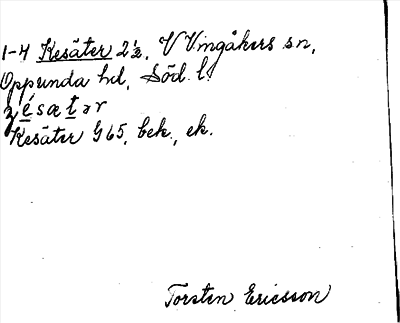 1-4 Kesäter 2½, V Vingåkers sn,
Oppunda hd, Söd. l.
Kesäter G65, bek., ek.
Torsten Ericsson